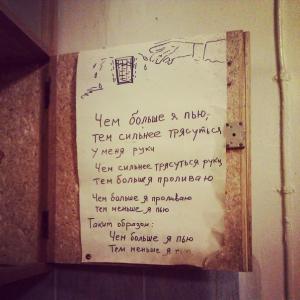 Чем больше я пью,
тем сильнее трясуться
у меня руки
Чем сильнее трясуться руки
тем больше я проливаю
Чем больше я проливаю
тем меньше я пью
Таким образом:
Чем больше я пью
Тем меньше я